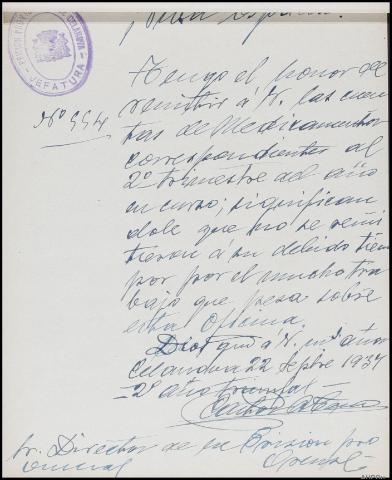 ¡Viva España!
PRISION CELANOVA
JEFATURA
Nº 994
Tengo el honor de
remitir á V. las cuen
tas de Medicamentos
correspondientes al
2º trimestre del año
en curso; significan
dole que no se remi
tieron á su debido tiem
por por el mucho tra
bajo que pesa sobre
esta Oficina.
Dios gue á V. ms años
Celanova 22 Sepbre 1937
-2º año triunfal-
Sr. Director de la Prision pro
Orense